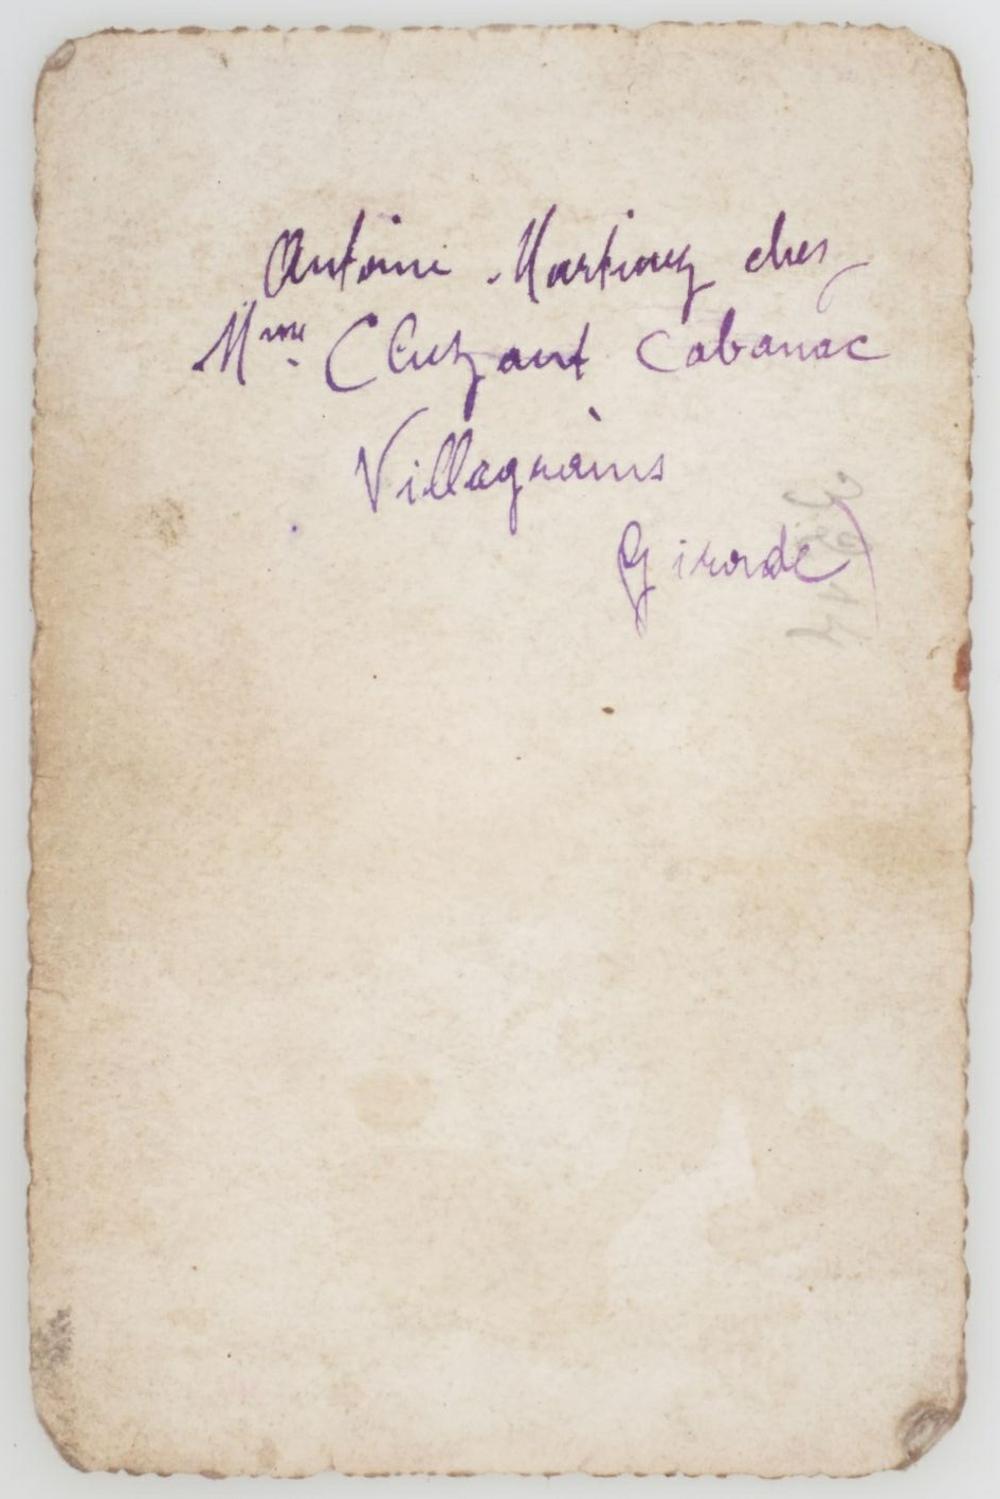 Antoine Martinez chez
Mme Cluzant Cabanac
Villagrains
Gironde)